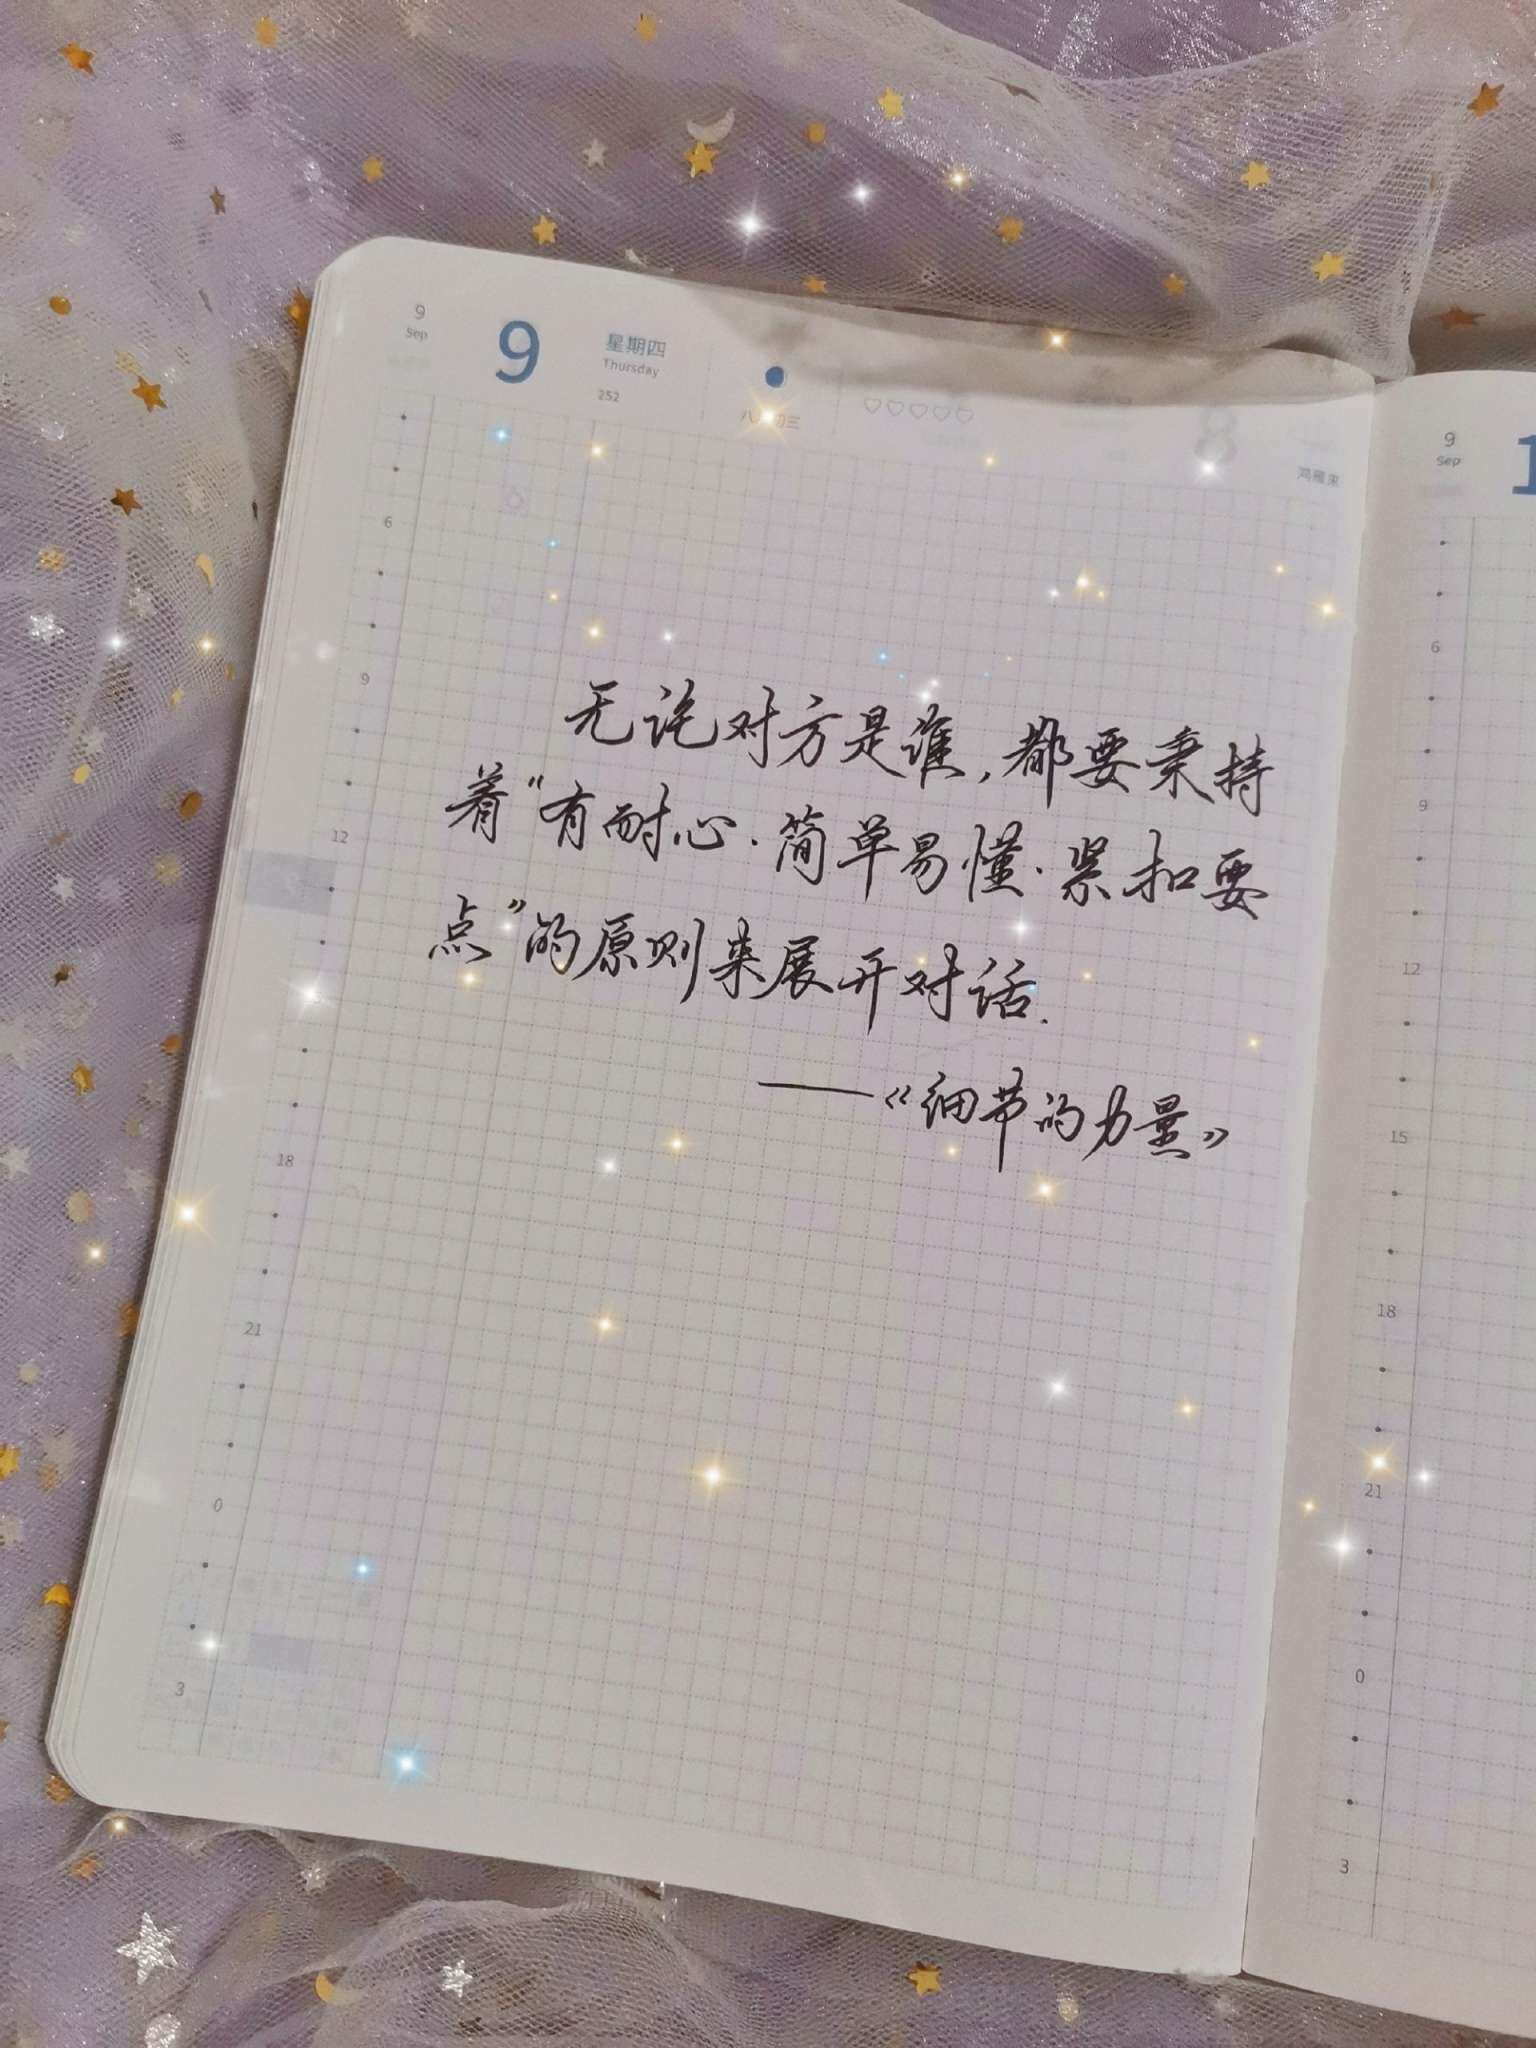 9
Sep
9
星期四
Thursday
252
八月初三
鸿雁来
无论对方是谁,都要秉持
着“有耐心·简单易懂·紧扣要
点”的原则来展开对话.
——《细节的力量》
6
9
12
15
18
21
0
3
9
Sep
1
6
9
12
15
18
21
0
3